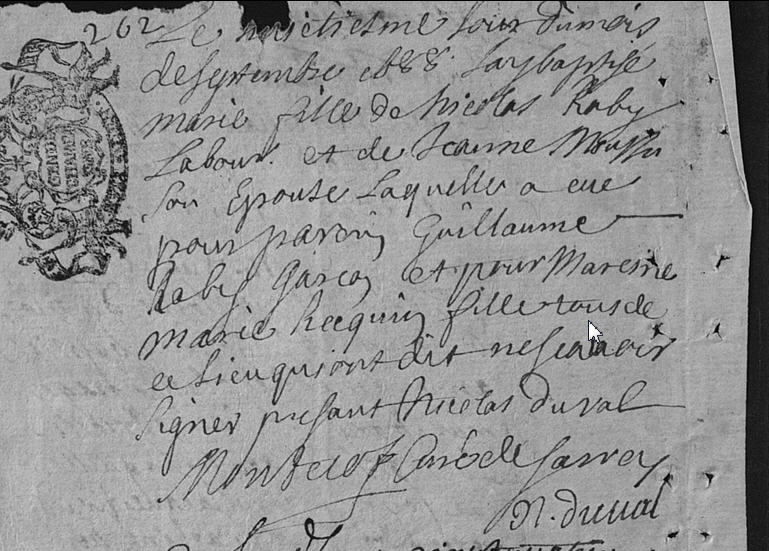 262 Le huictiesme Jour du mois
de septembre 1688 Jay baptisé
marie fille de Nicolas Raby
Labour. et de Jeanne
son Epouse Laquelle a eue
pour parein Guillaume
Raby Garcon et pour Mareine
marie hecquin fille tous de
ce Lieu qui ont dit ne scavoir
signer presant Nicolas duval
Curé de
N. duval